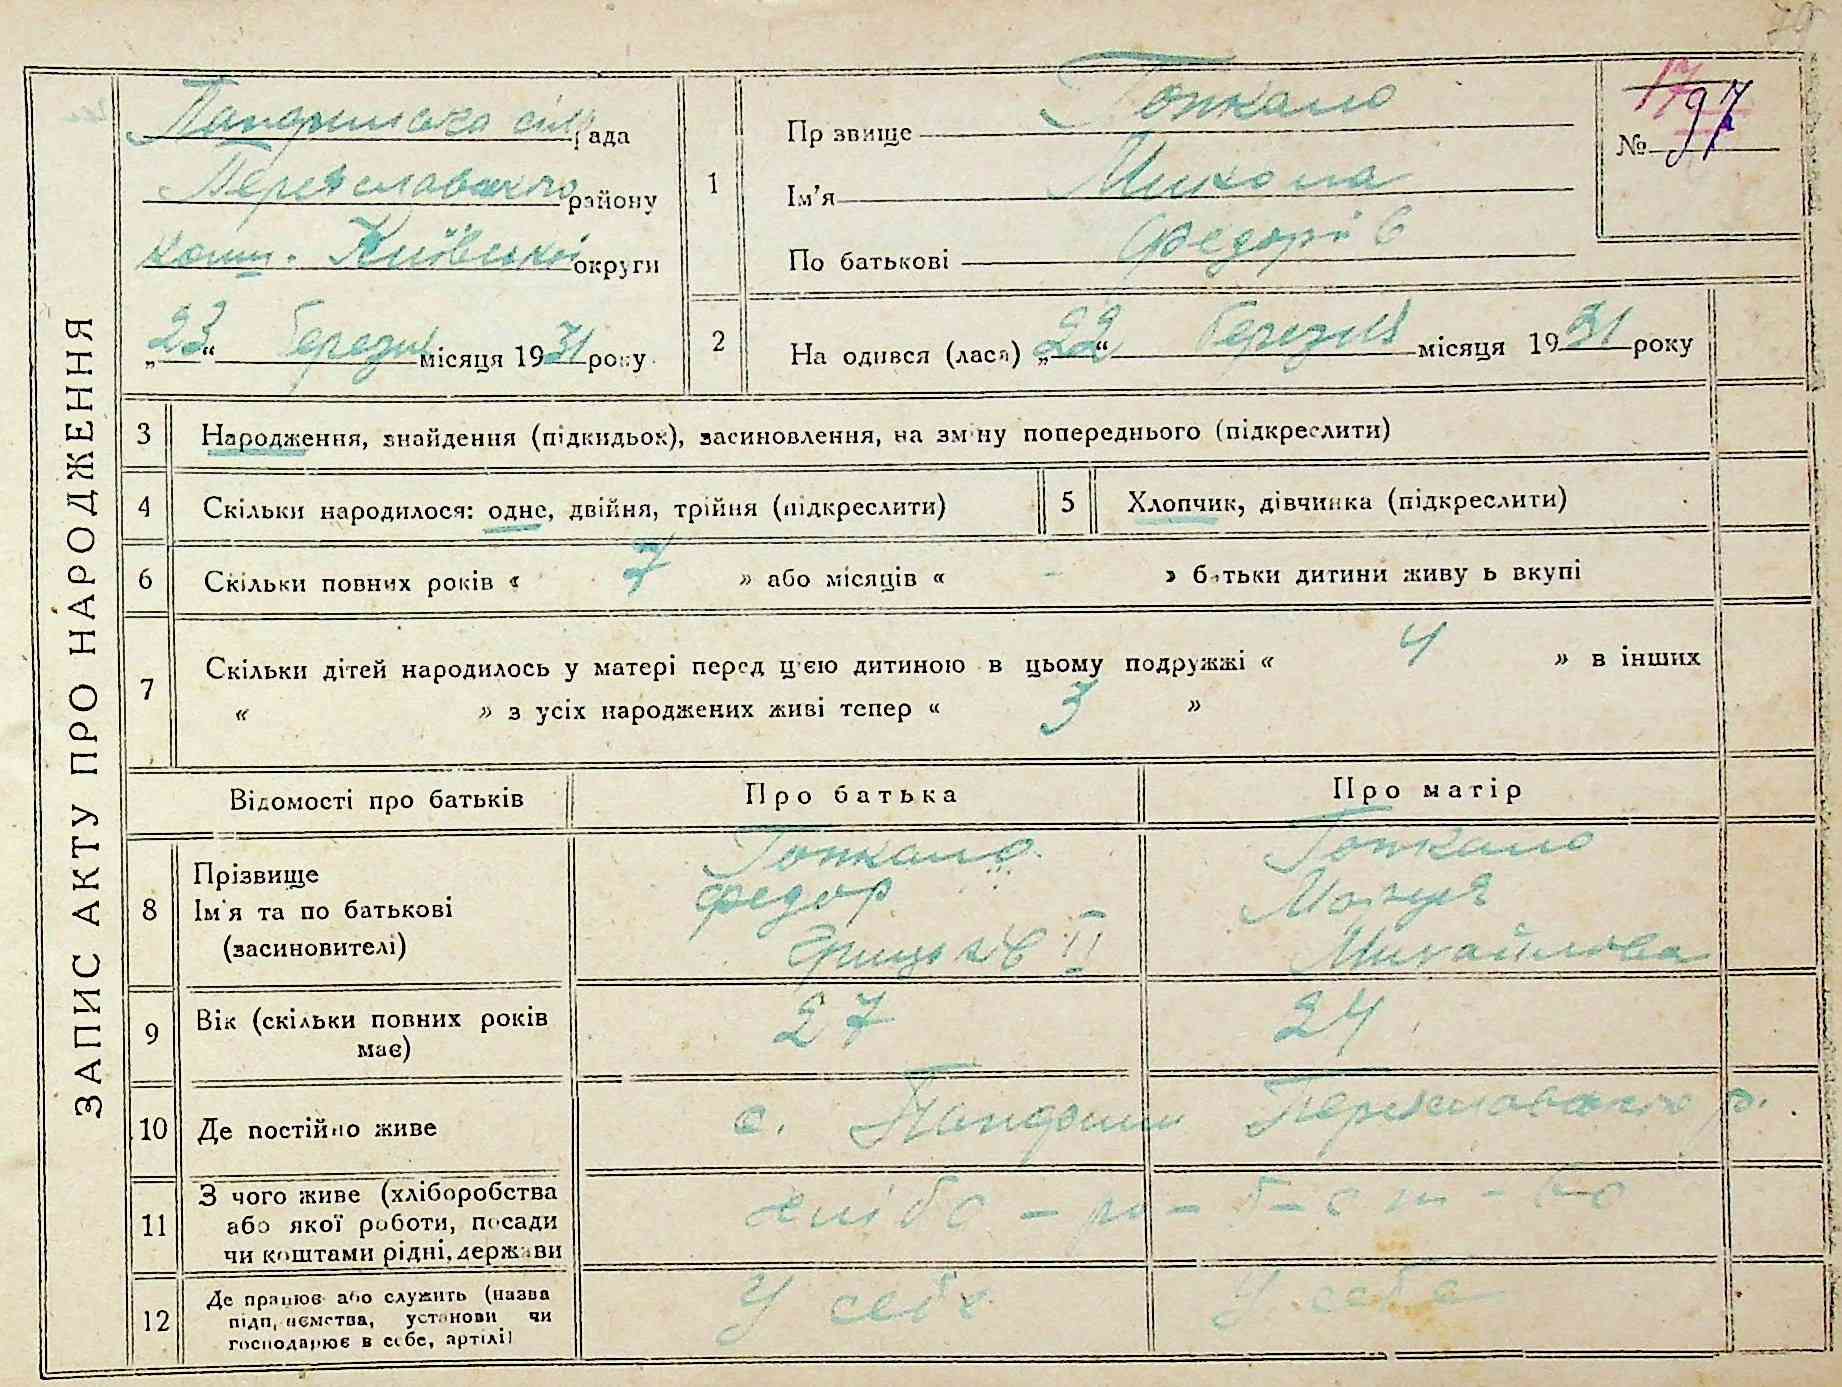 ЗАПИС АКТУ ПРО НАРОДЖЕННЯ
Панфильська сіл рада
Переяславського району
кол. Київської округи
„23“ березня місяця 1931 року
1
Прзвище Гопкало
Ім'я Микола
По батькові Федорів
№ 97
2
На одився (лася) „22“ березня місяця 1931 року
3 Народження, знайдення (підкидьок), засиновлення, на зміну попереднього (підкреслити)
4 Скільки народилося: одне, двійня, трійня (підкреслити)
5 Хлопчик, дівчинка (підкреслити)
6 Скільки повних років « 7 » або місяців « - » батьки дитини живуть вкупі
7 Скільки дітей народилось у матері перед цією дитиною в цьому подружжі « 4 » в інших
« » з усіх народжених живі тепер « 3 »
Відомості про батьків Про батька Про матір
8 Прізвище
Ім'я та по батькові
(засиновителі)
Гопкало
Федор
Грицьків II
Гопкало
Михайлівна
9 Вік (скільки повних років
має)
27 24
10 Де постійно живе с. Панфили Переяславського р.
11 З чого живе (хліборобства
або якої роботи, посади
чи коштами рідні, держави
хлібо-ро-б-ст-во
12 Де працює або служить (назва
підприємства, установи чи
господарює в себе, артілі)
У себе У себе